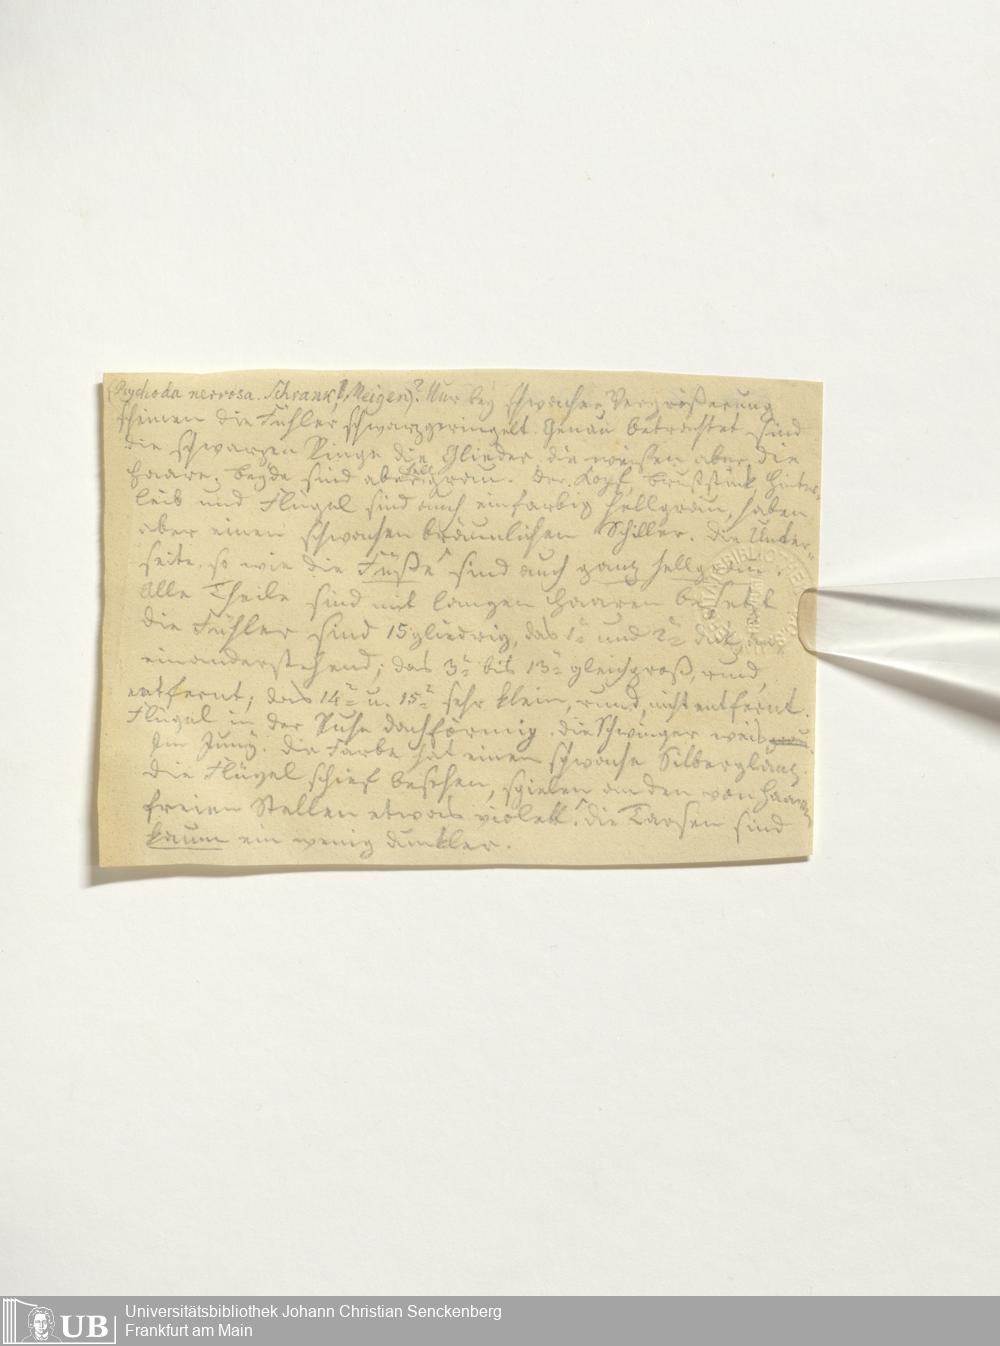 (Psychoda nervosa. Schrank, Meigen)? Nur bey schwacher Vergrößerung
scheinen die Fühler schwarzgeringelt. Genau betrachtet sind
die schwarzen Ringe die Glieder, die weißen aber die
Haare, beyde sind aber hellgrau. Der Kopf, Bruststück, Hinter-
leib und Flügel sind auch einfarbig hellgrau, haben
aber einen schwachen bräunlichen Schiller. die Unter-
seite, so wie die Füße sind auch ganz hellgrau.
Alle Theile sind mit langen Haaren besetzt
die Fühler sind 15gliedrig, das 1te und 2te dick, an
einanderstehend; das 3te bis 13te gleichgroß, rund,
entfernt; das 14te u. 15te sehr klein, rund, nicht entfernt.
Flügel in der Ruhe dachförmig. die Schwinger weis grau.
Im Juny. die Farbe hat einen schwache Silberglanz.
die Flügel schief besehen, spielen an den von Haaren
freien Stellen etwas violett. die Tarsen sind
kaum ein wenig dunkler.
UB
Universitätsbibliothek Johann Christian Senckenberg
Frankfurt am Main